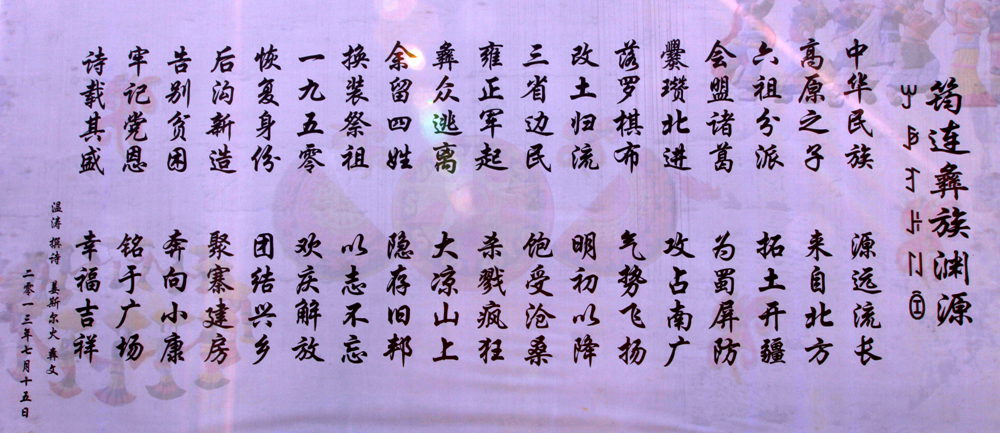 筠连彝族渊源
中华民族 源远流长
高原之子 来自北方
六祖分派 拓土开疆
会盟诸葛 为蜀屏防
爨瓒北进 攻占南广
落罗棋布 气势飞扬
改土归流 明初以降
三省边民 饱受沧桑
雍正军起 杀戮疯狂
彝众逃离 大凉山上
余留四姓 隐存旧邦
换装祭祖 以志不忘
一九五零 欢庆解放
恢复身份 团结兴乡
后沟新造 聚寨建房
告别贫困 奔向小康
牢记党恩 铭于广场
诗载其盛 幸福吉祥
温涛 撰诗 姜斯尔火 彝文
二零一三年七月十五日